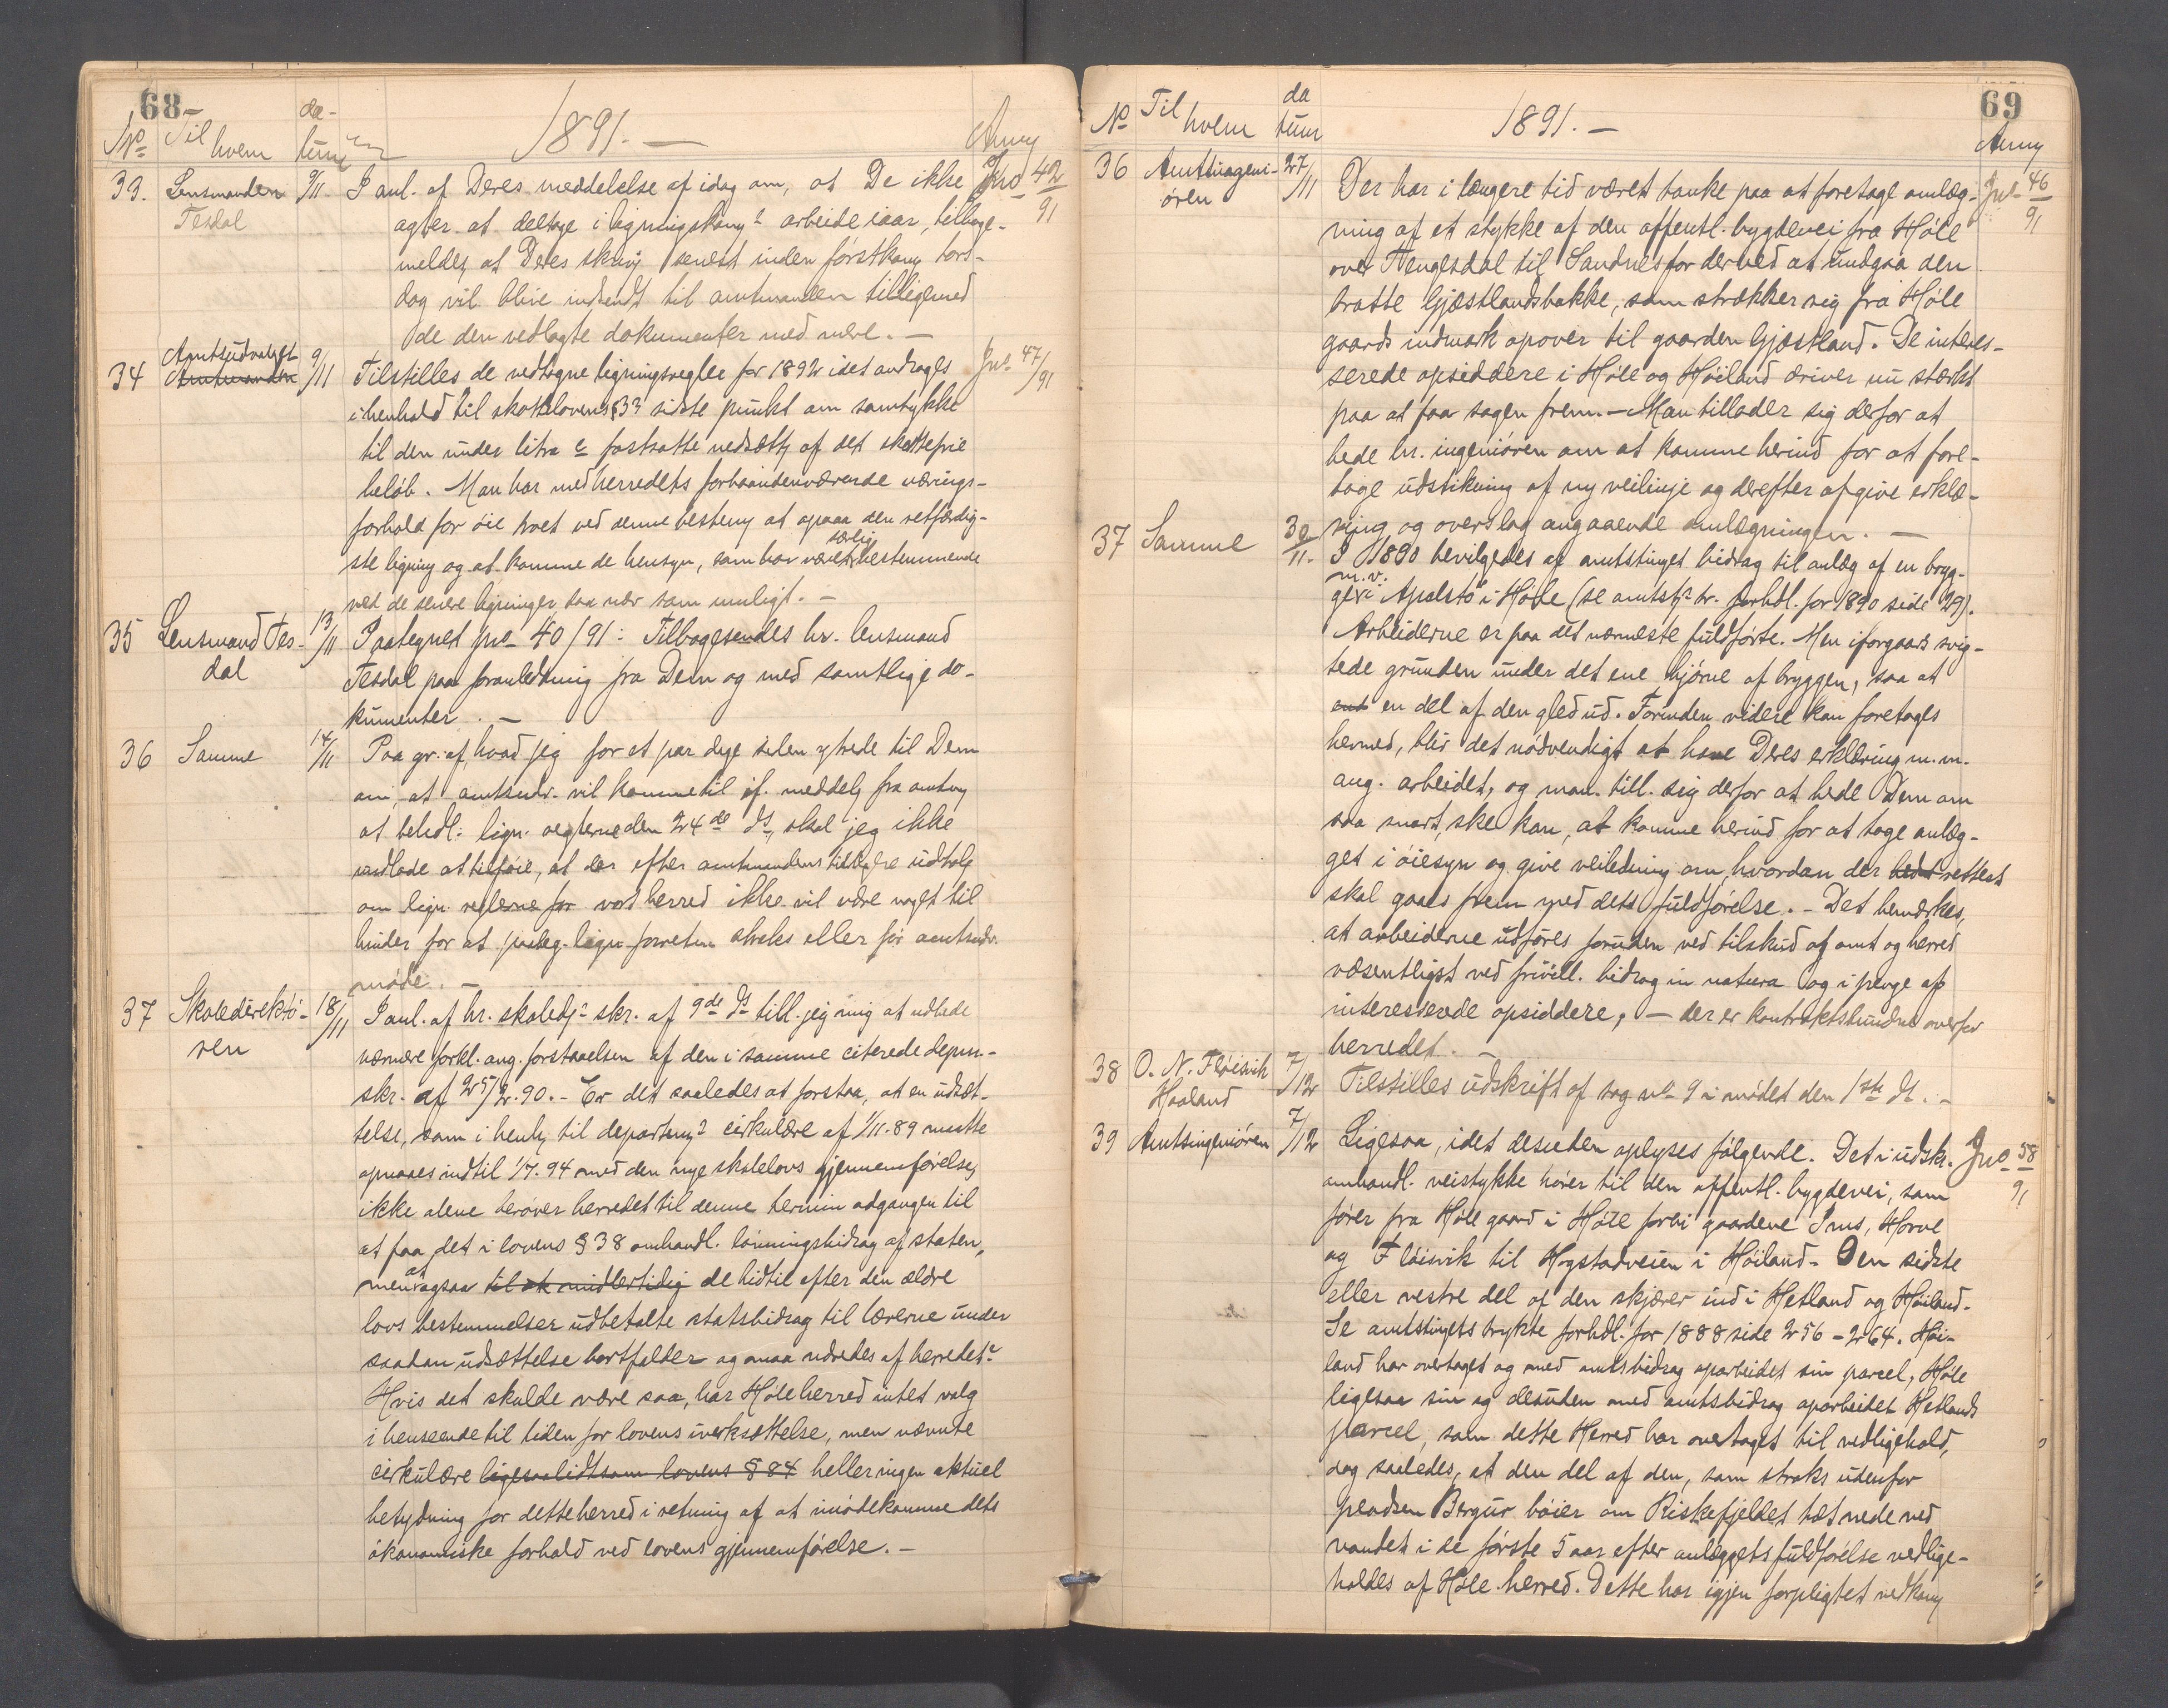 68
No Til hvem da-
tum
1891. —
Anm
33. Lensmanden 9/11 I anl. af Deres meddelelse af idag om, at De ikke Jno 42/91
Tesdal agter at deltage i ligningskom? arbeide iaar, tilbage-
meldes, at Deres skriv senest inden førstkom tors-
dag vil blive indsendt til amtmanden tilligemed
de den vedlagte dokumenter med mere. —
Amtsudvalget
34 Amtmanden 9/11 Tilstilles de vedtagne ligningsregler for 1892 idet andrages Jno 47/91
i henhold til skattelovens § 33 sidste punkt om samtykke
til den under litra c fastsatte nedsætt af det skattefrie
beløb. Man har med herredets forhaandenværende nærings-
forhold for øie troet ved denne bestem at opnaa den retfærdig-
særlig
ste ligning og at komme de hensyn, som har været bestemmende
ved de senere ligninger saa nær som muligt. —
35 Lensmand Tes- 13/11 Paategnet jno 40/91: Tilbagesendes hr. lensmand
dal Tesdal paa foranledning fra Dem og med samtlige do-
kumenter. —
36 Samme 14/11 Paa gr. af, hvad jeg for et par dage siden ytrede til Dem
om, at amtsudv. vil komme til if. meddel fra amtm
at behdl. lign. reglerne den 24de ds, skal jeg ikke
undlade at tilføie, at der efter amtmandens tidligere udtale
om lign. reglerne for vort herred ikke vil være noget til
hinder for at paabeg. lign. forretn straks eller før amtsudv.
møde. —
37 Skoledirektø- 18/11 I anl. af hr. skoledj? skr. af 9de ds till. jeg mig at udbede
ren nærmere forkl. ang. forstaaelsen af den i samme citerede depm-
skr. af 25/2.90. – Er det saaledes at forstaa, at en udsæt-
telse, som i henh til departem? cirkulære af 1/11.89 maatte
opnaaes indtil 1/7.94 med den nye skolelovs gjennemførelse,
ikke alene berøver herredet til denne termin adgangen til
at faa det i lovens § 38 omhandl. lønningsbidrag af staten,
at
men ogsaa til at midlertidig de hidtil efter den ældre
lovs bestemmelser udbetalte statsbidrag til lærerne under
saadan udsættelse bortfalder og maa udredes af herredet?
Hvis det skulde være saa, har Høle herred intet valg
i henseende til tiden for lovens iverksættelse, men nævnte
cirkulære ligesaalidt som lovens § 84 heller ingen aktuel
betydning for dette herred i retning af at imødekomme dets
økonomiske forhold ved lovens gjennemførelse. —
69
No Til hvem da
tum
1891. —
Anm
36 Amtsingeni- 27/11 Der har i længere tid været tanke paa at foretage omlæg- Jno 46/91
øren ning af et stykke af den offentl. bygdevei fra Høle
over Tengesdal til Sandnes for derved at undgaa den
bratte Gjæstlandsbakke, som strækker sig fra Høle
gaards indmark opover til gaarden Gjæstland. De interes-
serede opsiddere i Høle og Høiland driver nu stærkt
paa at faa sagen frem. — Man tillader sig derfor at
bede hr. ingeniøren om at komme herind for at fore-
tage udstikning af ny veilinje og derefter afgive erklæ-
ring og overslag angaaende omlægningen. —
37 Samme 30/11. I 1890 bevilgedes af amtstinget bidrag til anlæg af en bryg-
m.v.
ge i Apalstø i Høle (se amtst? tr. forhdl. for 1890 side 29).
Arbeiderne er paa det nærmeste fuldførte. Men iforgaars svig-
tede grunden under det ene hjørne af bryggen, saa at
en del af den gled ud. Forinden videre kan foretages
hermed, blir det nødvendigt at have Deres erklæring m. m.
ang. arbeidet, og man till. sig derfor at bede Dem om
saa snart, ske kan, at komme herind for at tage anlæg-
get i øiesyn og give veiledning om, hvordan der bedst rettest
skal gaaes frem med dets fuldførelse. – Det bemærkes,
at arbeiderne udføres foruden ved tilskud af amt og herred
væsentligst ved frivill. bidrag in natura og i penge af
interesserede opsiddere, — der er kontraktsbundne overfor
herredet. —
38 O. N. Fløisvik 7/12 Tilstilles udskrift af sag no 9 i mødet den 1ste ds. –
Haaland
39 Amtsingeniøren 7/12 Ligesaa, idet desuden oplyses følgende. Det i udskr. Jno 58/91
omhandl. veistykke hører til den offentl. bygdevei, som
fører fra Høle gaard i Høle forbi gaardene Ims, Horve
og Fløisvik til Hogstadveien i Høiland. Den sidste
eller vestre del af den skjærer ind i Hetland og Høiland.
Se amtstingets trykte forhdl. for 1888 side 256 – 264. Høi-
land har overtaget og med amtsbidrag oparbeidet sin parcel, Høle
ligesaa sin og desuden med amtsbidrag oparbeidet Hetlands
parcel, som dette Herred har overtaget til vedligehold,
dog saaledes, at den del af den, som straks udenfor
pladsen Bergur bøier om Riskefjeldet tæt nede ved
vandet i de første 5 aar efter anlæggets fuldførelse vedlige-
holdes af Høle herred. Dette har igjen forpligtet vedkom